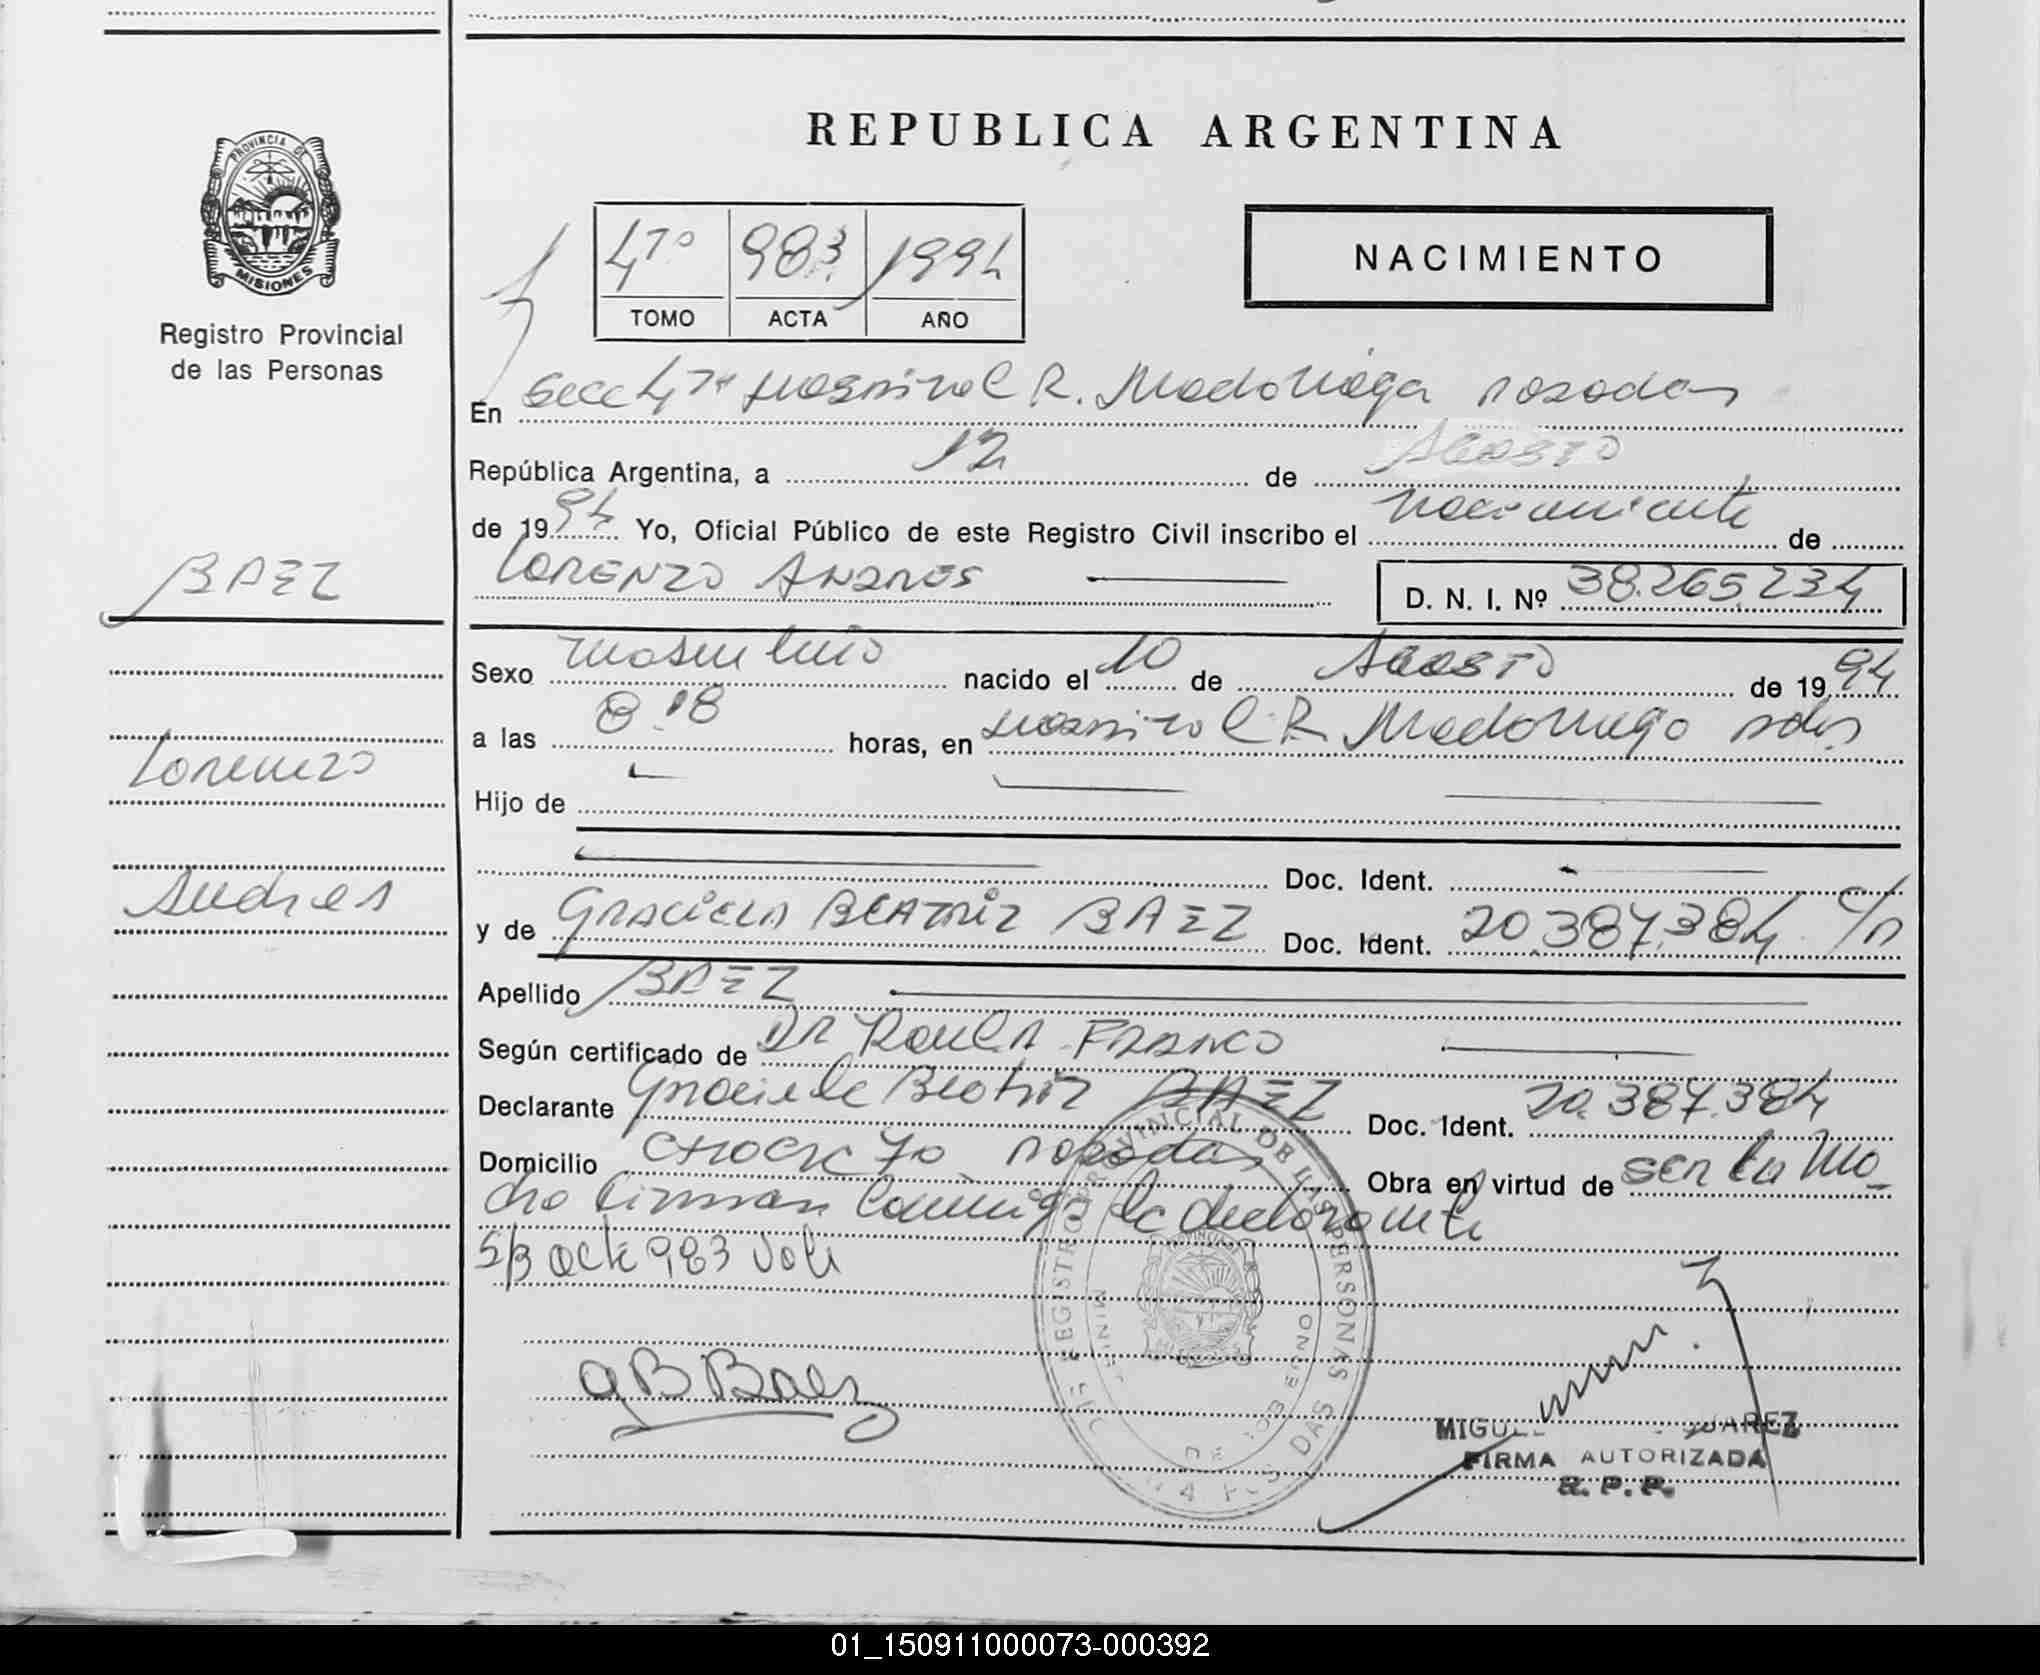 PROVINCIA DE
MISIONES
Registro Provincial
de las Personas
BAEZ
Lorenzo
Andres
REPUBLICA ARGENTINA
4º 983 1994
TOMO ACTA AÑO
NACIMIENTO
En Secc 4ª Hospital R. Madariaga Posadas
República Argentina, a 12 de Agosto
de 1994 Yo, Oficial Público de este Registro Civil inscribo el nacimiento de
LORENZO ANDRES D. N. I. Nº 38.265.234
Sexo masculino nacido el 10 de Agosto de 1994
a las 8.18 horas, en Hospital R Madariaga Pdas
Hijo de
Doc. Ident.
y de GRACIELA BEATRIZ BAEZ Doc. Ident. 20.387.384
Apellido BAEZ
Según certificado de DR FRANCO
Declarante Graciela Beatriz BAEZ Doc. Ident. 20.387.384
Domicilio 70 Posadas Obra en virtud de ser la Ma-
dre Firman Conmigo la declarante
S/B acta 983 Vale
REGISTRO PROVINCIAL DE LAS PERSONAS
DE GOBIERNO
POSADAS
PROVINCIA
MISIONES
G B Baez
JUAREZ
FIRMA AUTORIZADA
R. P. P.
01_150911000073-000392